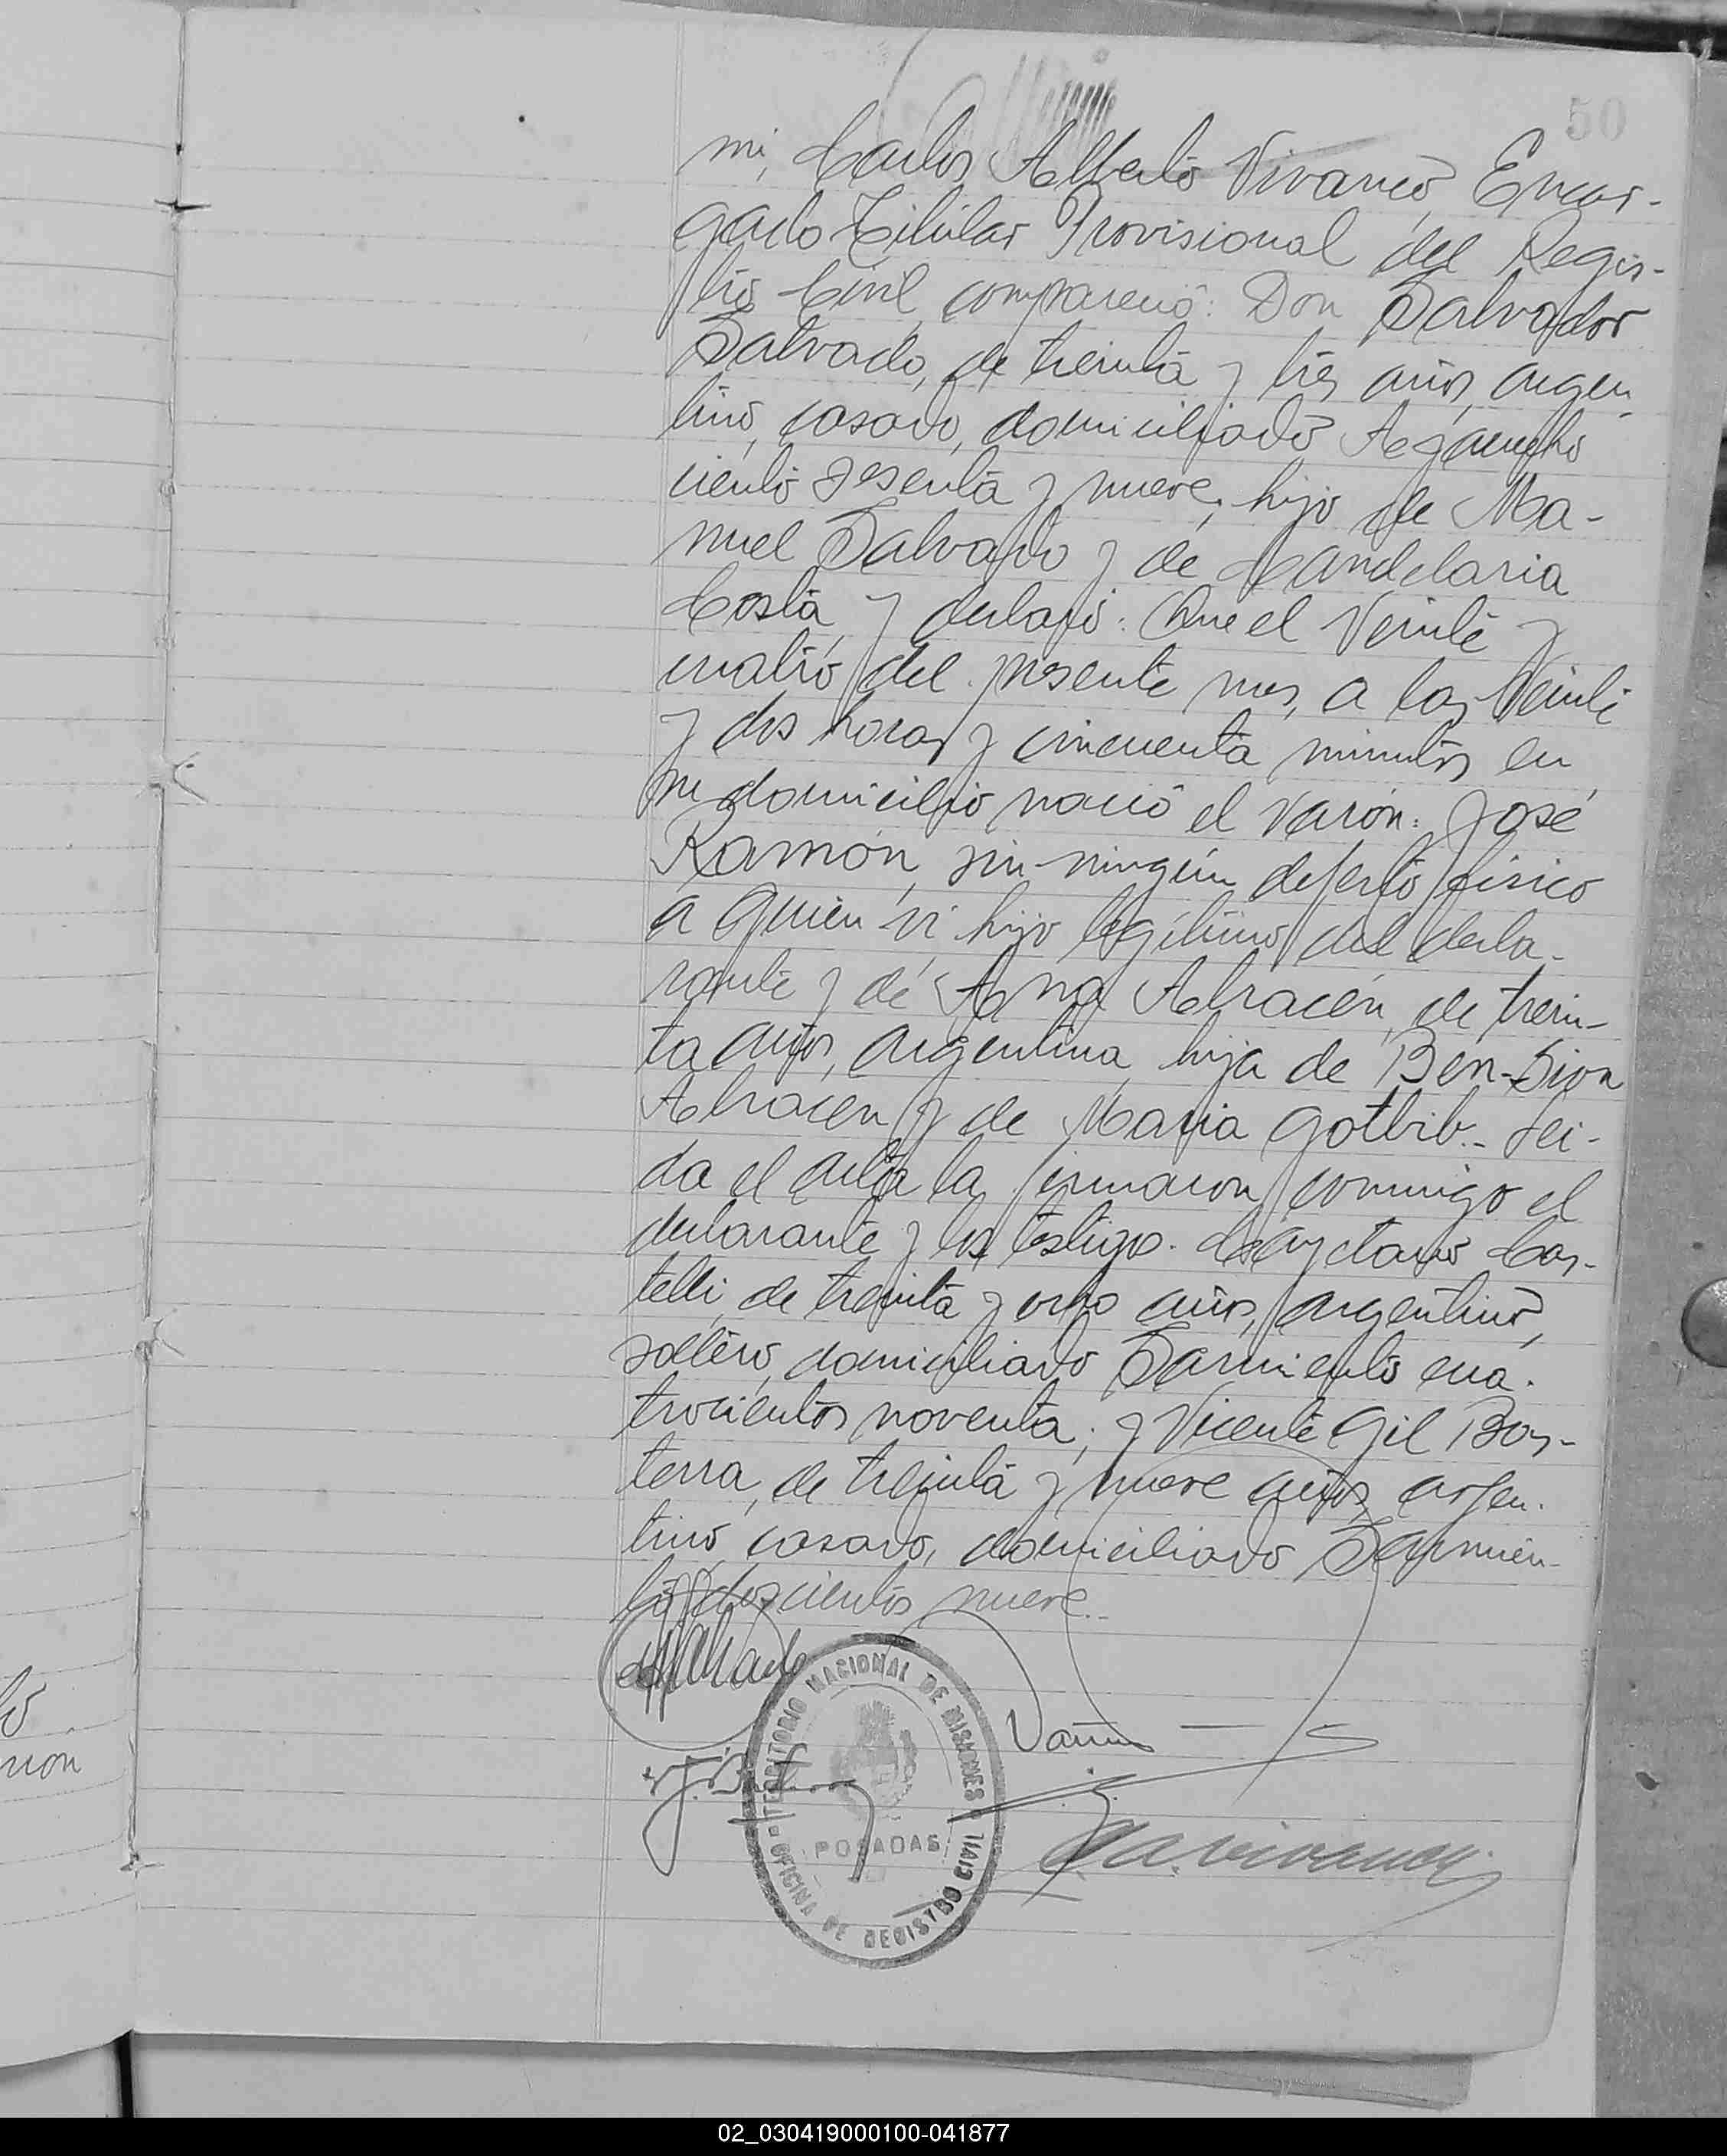 50
mi, Carlos Alberto Vivanco, Encar-
gado Titular Provisional del Regis-
tro Civil, compareció: Don Salvador
Salvado, de treinta y tres años, argen-
tino, casado, domiciliado Ayacucho
ciento sesenta y nueve, hijo de Ma-
nuel Salvado y de Candelaria
Costa, y declaró: Que el Veinte y
cuatro del presente mes, a las Veinte
y dos horas y cincuenta minutos en
su domicilio nació el varón: José
Ramón, sin ningún defecto físico
a quien vi hijo legítimo del decla-
rante y de Ana Abracen, de trein-
ta años, argentina, hija de Ben-Sion
Abracen y de Maria Gotbib.- Lei-
da el acta la firmaron conmigo el
declarante y los testigos. Cayetano Cas-
telli, de treinta y ocho años, argentino,
soltero, domiciliado Sarmiento cua-
trocientos noventa; y Vicente Gil Bas-
terra, de treinta y nueve años, argen-
tino, casado, domiciliado Sarmien-
to doscientos nueve.-
TERRITORIO NACIONAL DE MISIONES
POSADAS
OFICINA DE REGISTRO CIVIL
C.A. Vivanco
ión
02_030419000100-041877